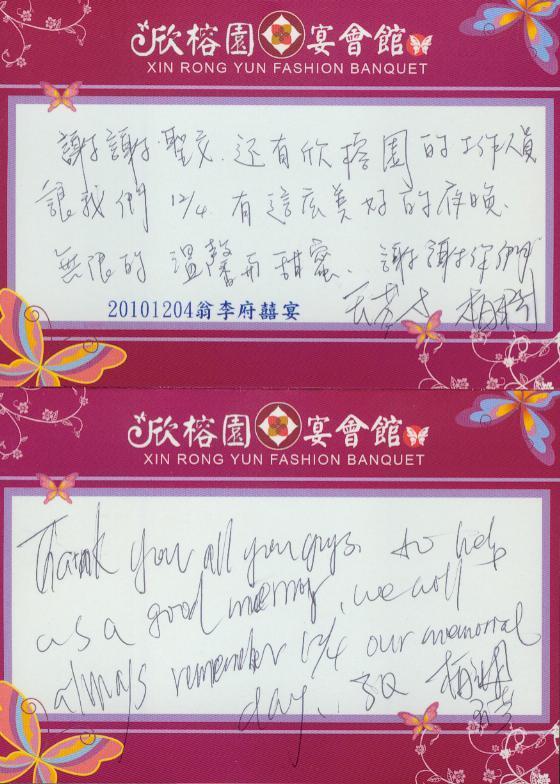 欣榕園宴會館
XIN RONG YUN FASHION BANQUET
謝謝聖文.還有欣榕園的工作人員
讓我們 12/4 有這麼美好的夜晚.
無限的 溫馨而甜蜜. 謝謝你們
20101204翁李府囍宴
欣榕園宴會館
XIN RONG YUN FASHION BANQUET
Thank you all you guys. to help
us a good memory, we will
always remember 12/4 our memorial
day. 3Q